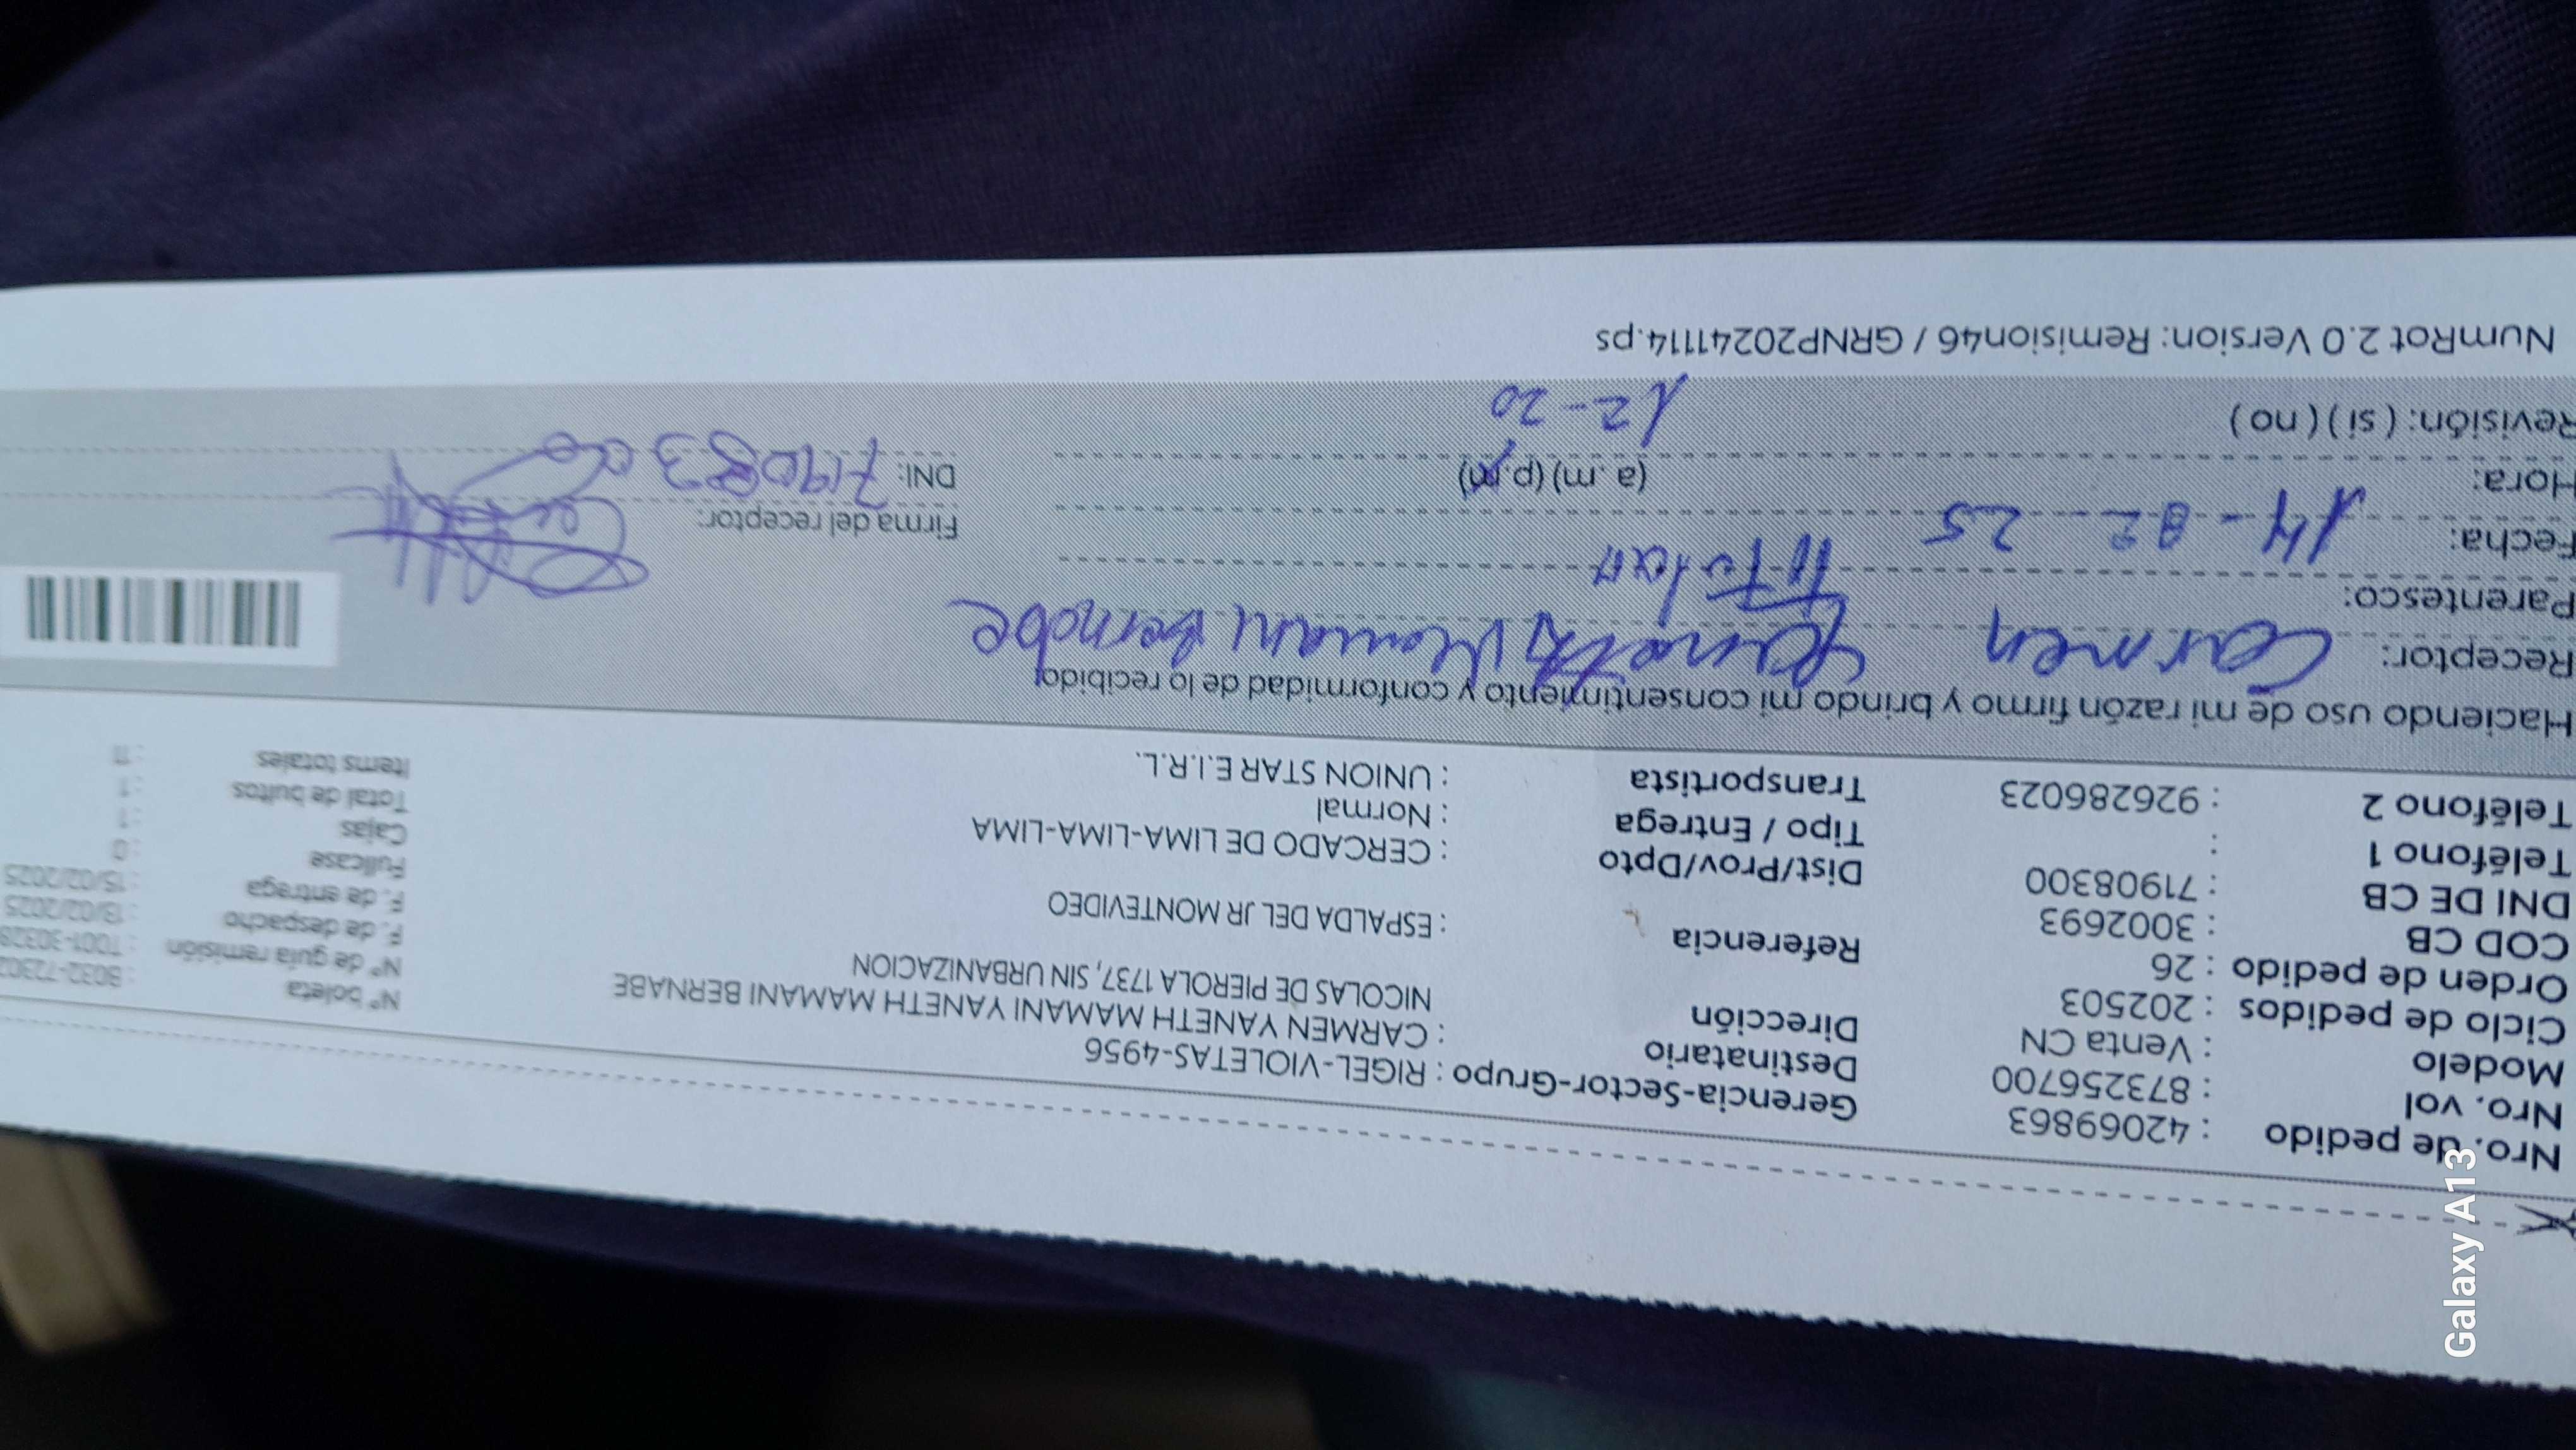 Nro. de pedido : 42069863
Nro. vol : 873256700
Modelo : Venta CN
Ciclo de pedidos : 202503
Orden de pedido : 26
COD CB : 3002693
DNI DE CB : 71908300
Teléfono 1 :
Teléfono 2 : 926286023
Gerencia-Sector-Grupo : RIGEL-VIOLETAS-4956
Destinatario : CARMEN YANETH MAMANI YANETH MAMANI BERNABE
Dirección NICOLAS DE PIEROLA 1737, SIN URBANIZACION
Referencia : ESPALDA DEL JR MONTEVIDEO
Dist/Prov/Dpto : CERCADO DE LIMA-LIMA-LIMA
Tipo / Entrega : Normal
Transportista : UNION STAR E.I.R.L.
N° boleta : B032-72302
N° de guía remisión : T001-30329
F. de despacho : 13/02/2025
F. de entrega : 15/02/2025
Fullcase : 0
Cajas : 1
Total de bultos : 1
Items totales : 11
Haciendo uso de mi razón firmo y brindo mi consentimiento y conformidad de lo recibido
Receptor: Carmen Yaneth Mamani Bernabe
Parentesco: Titular
Fecha: 14-02-25
Hora: (a.m) (p.m) 12-20
Revisión: ( si ) ( no )
Firma del receptor:
DNI: 71908300
NumRot 2.0 Version: Remision46 / GRNP20241114.ps
Galaxy A13